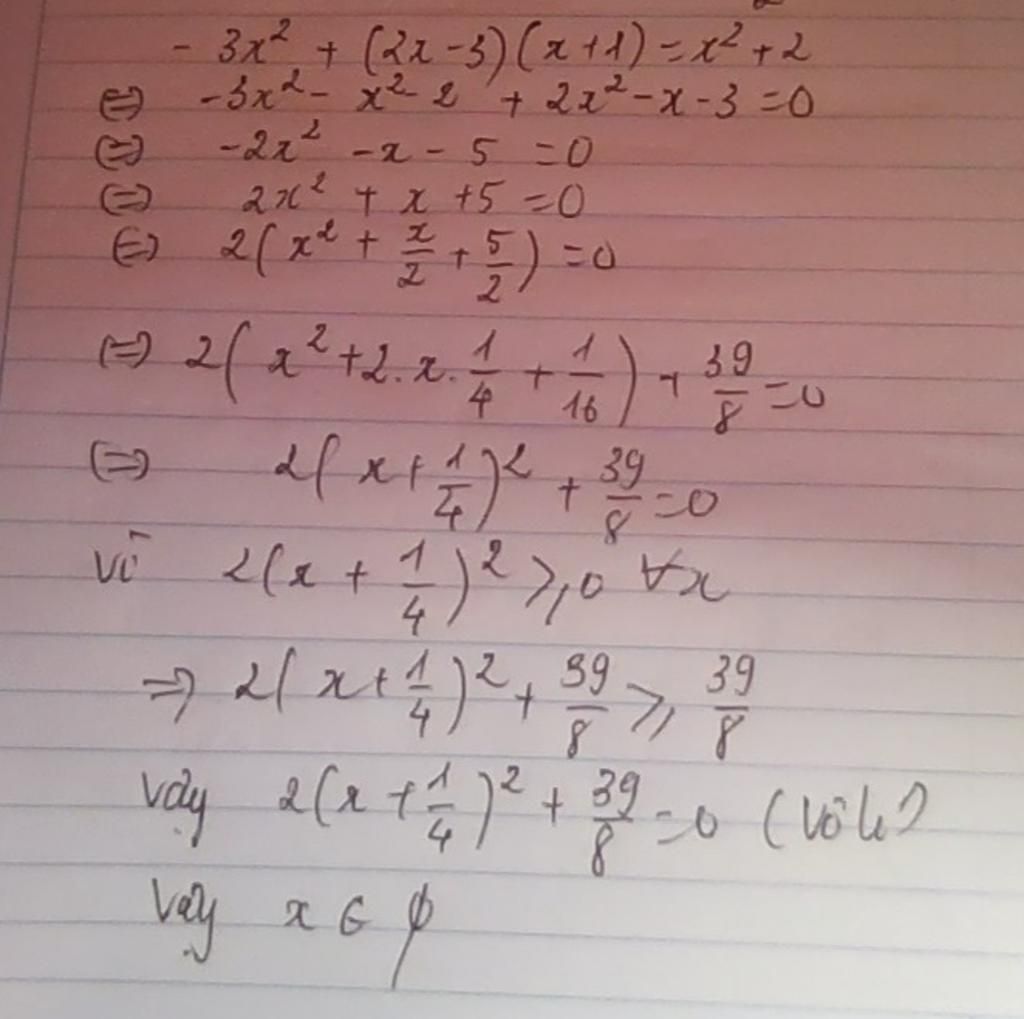 - 3x² + (2x-3)(x+1) = x² + 2
⇔ -3x² - x² - 2 + 2x² - x - 3 = 0
⇔ -2x² - x - 5 = 0
⇔ 2x² + x + 5 = 0
⇔ 2(x² + x/2 + 5/2) = 0
⇔ 2(x² + 2.x.1/4 + 1/16) + 39/8 = 0
⇔ 2(x + 1/4)² + 39/8 = 0
Vì 2(x + 1/4)² ≥ 0 ∀x
⇒ 2(x + 1/4)² + 39/8 ≥ 39/8
Vậy 2(x + 1/4)² + 39/8 = 0 (Vô lí)
Vậy x ∈ ∅